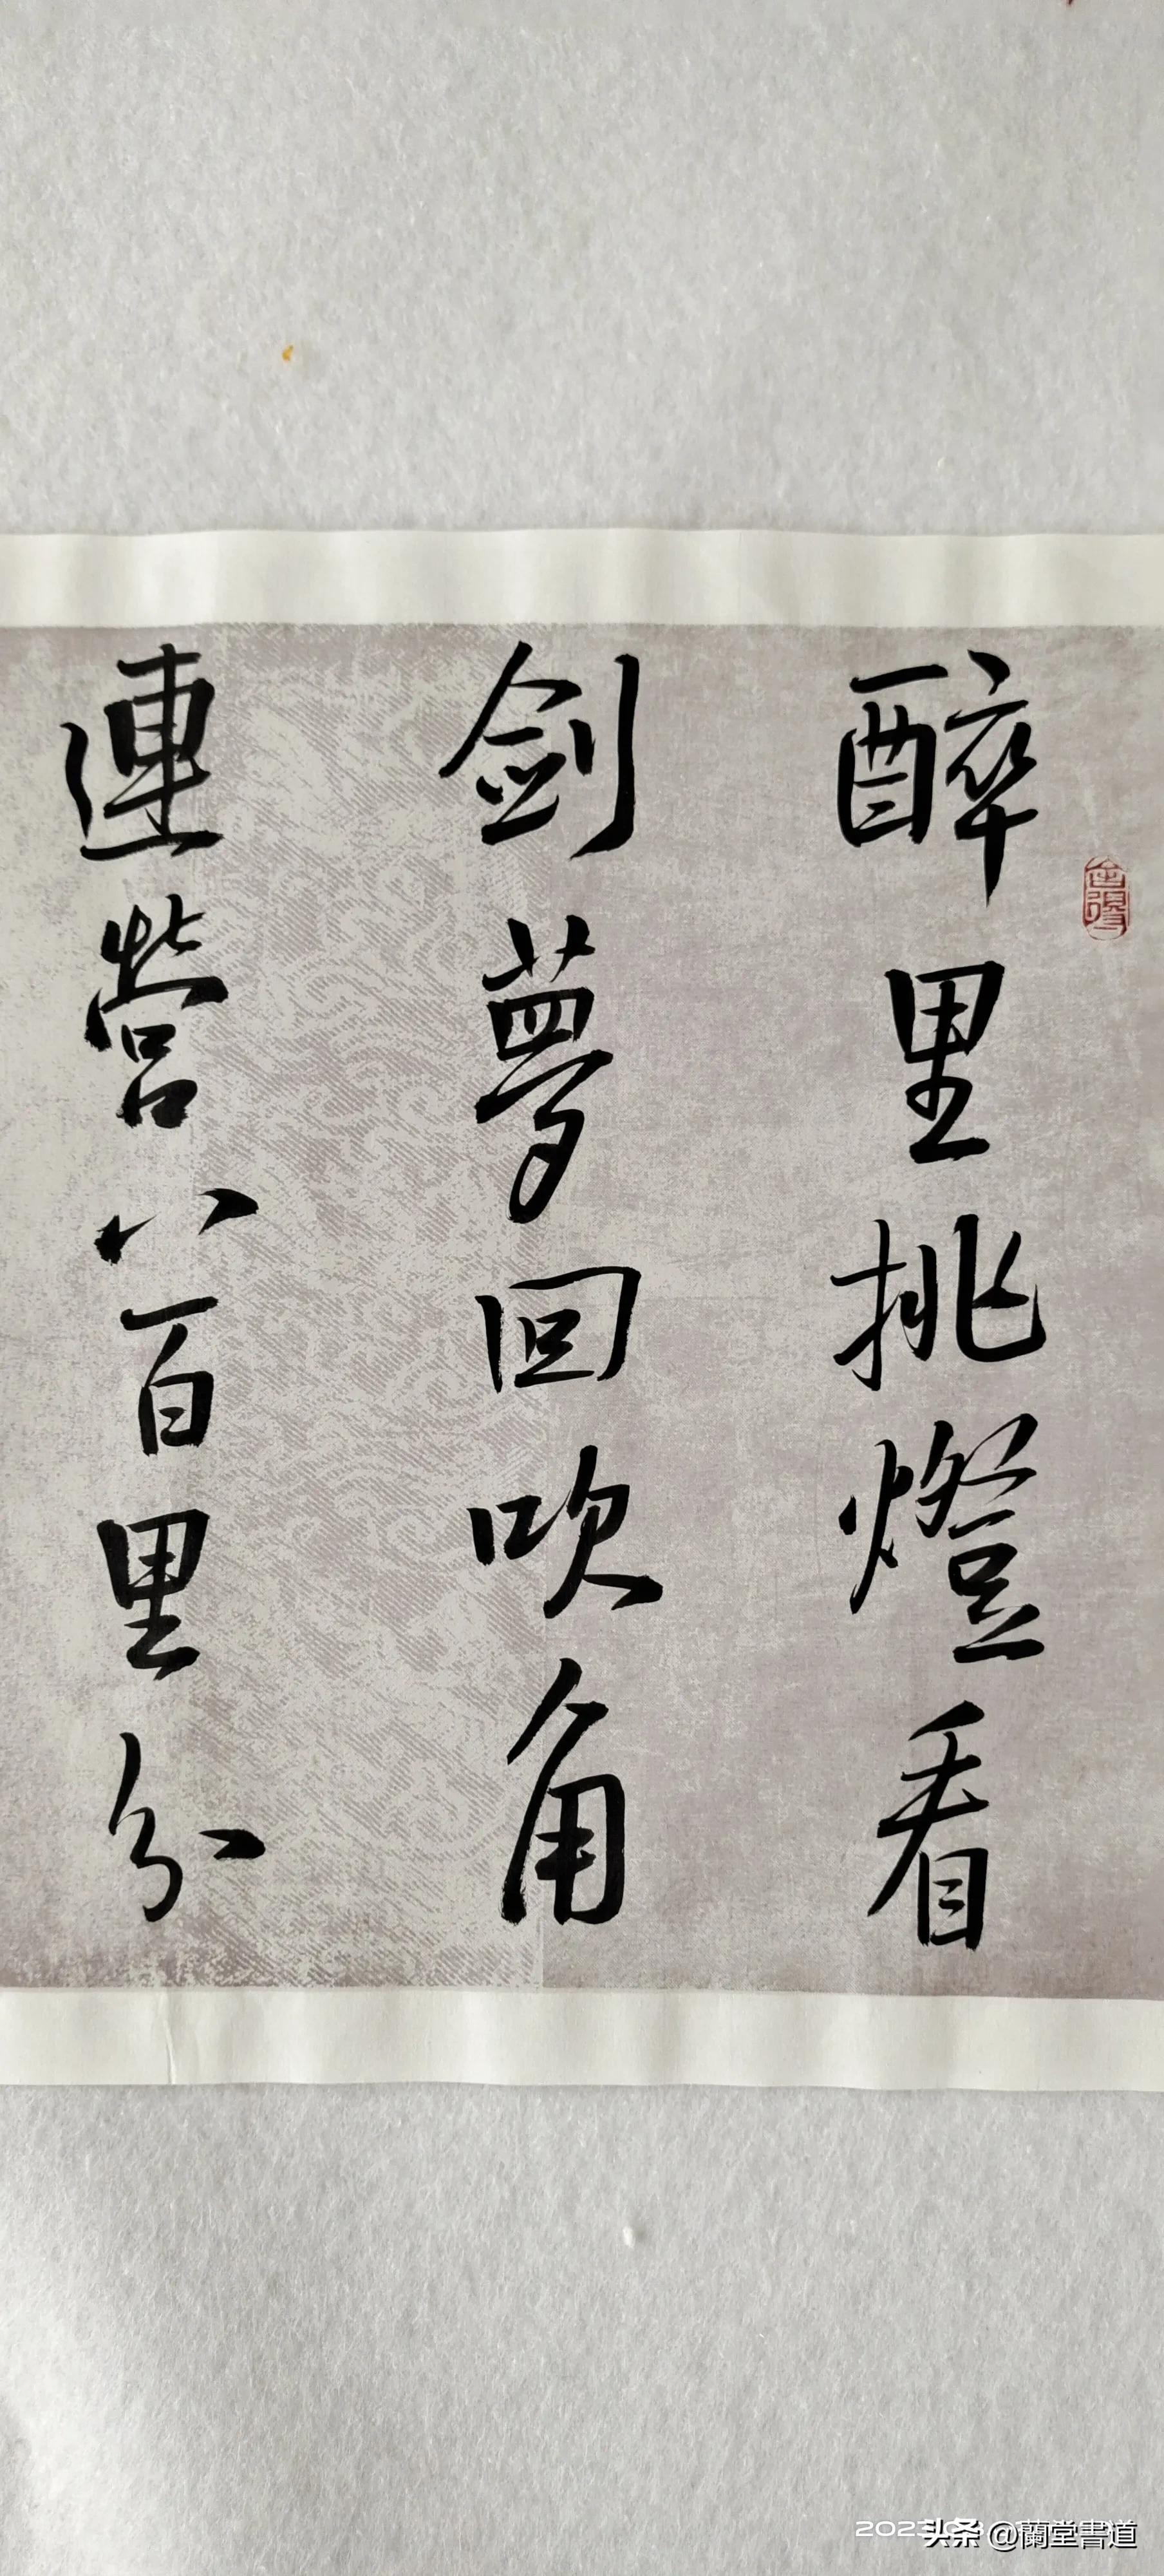 醉里挑燈看
剑夢回吹角
連營八百里分
头条 @蘭堂書道